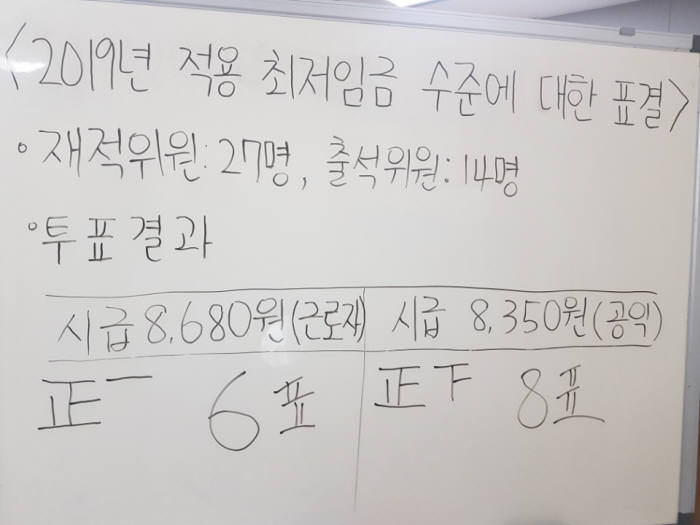 <2019년 적용 최저임금 수준에 대한 표결>
• 재적위원: 27명, 출석위원: 14명
• 투표결과
시급 8,680원(근로자) 시급 8,350원(공익)
正一 6표 正下 8표